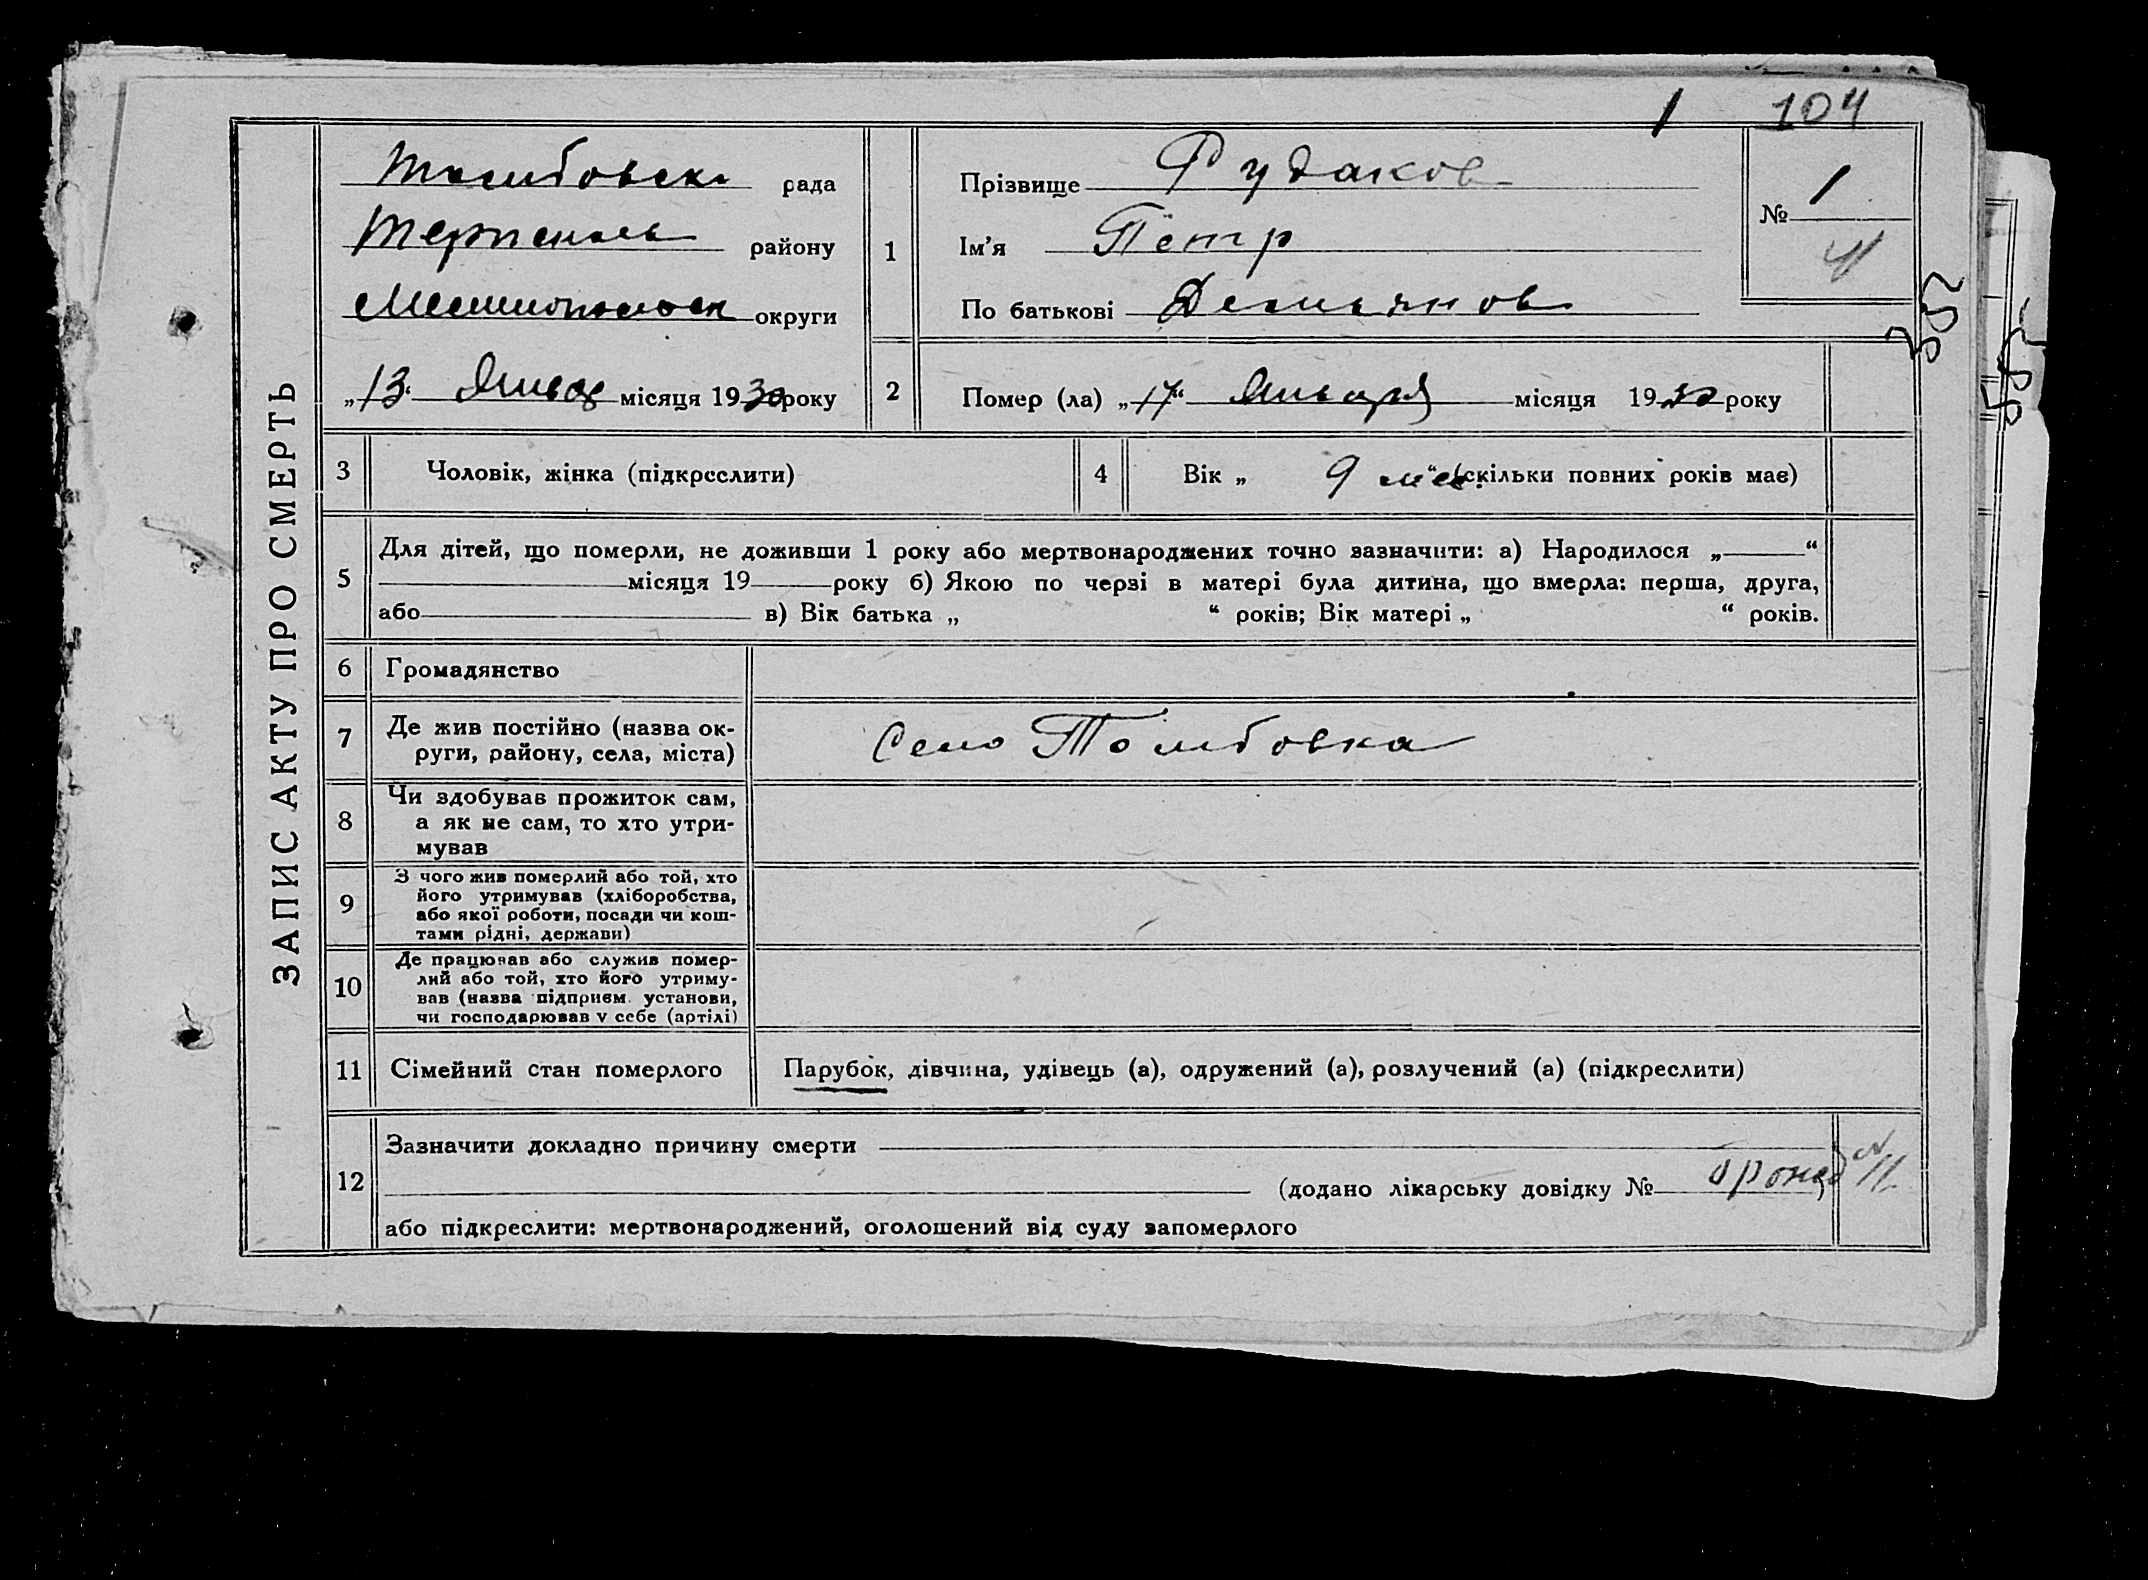 1 104
ЗАПИС АКТУ ПРО СМЕРТЬ
Тамбовска рада
району
округи
„13“ Января місяця 1930 року
1
Прізвище Рудаков
Ім’я Пётр
По батькові Демьянов
№ 1
2
Помер (ла) „17“ Января місяця 1930 року
3
Чоловік, жінка (підкреслити)
4
Вік „ 9 мес. “ (скільки повних років має)
5
Для дітей, що померли, не доживши 1 року або мертвонароджених точно зазначити: а) Народилося „ “
місяця 19 року б) Якою по черзі в матері була дитина, що вмерла: перша, друга,
або в) Вік батька „ “ років; Вік матері „ “ років.
6
Громадянство
7
Де жив постійно (назва ок-
руги, району, села, міста)
Село Томбовка
8
Чи здобував прожиток сам,
а як не сам, то хто утри-
мував
9
З чого жив померлий або той, хто
його утримував (хліборобства,
або якої роботи, посади чи кош-
тами рідні, держави)
10
Де працював або служив помер-
лий або той, хто його утриму-
вав (назва підприєм. установи,
чи господарював у себе (артілі)
11
Сімейний стан померлого
Парубок, дівчина, удівець (а), одружений (а), розлучений (а) (підкреслити)
12
Зазначити докладно причину смерти
(додано лікарську довідку №
або підкреслити: мертвонароджений, оголошений від суду запомерлого